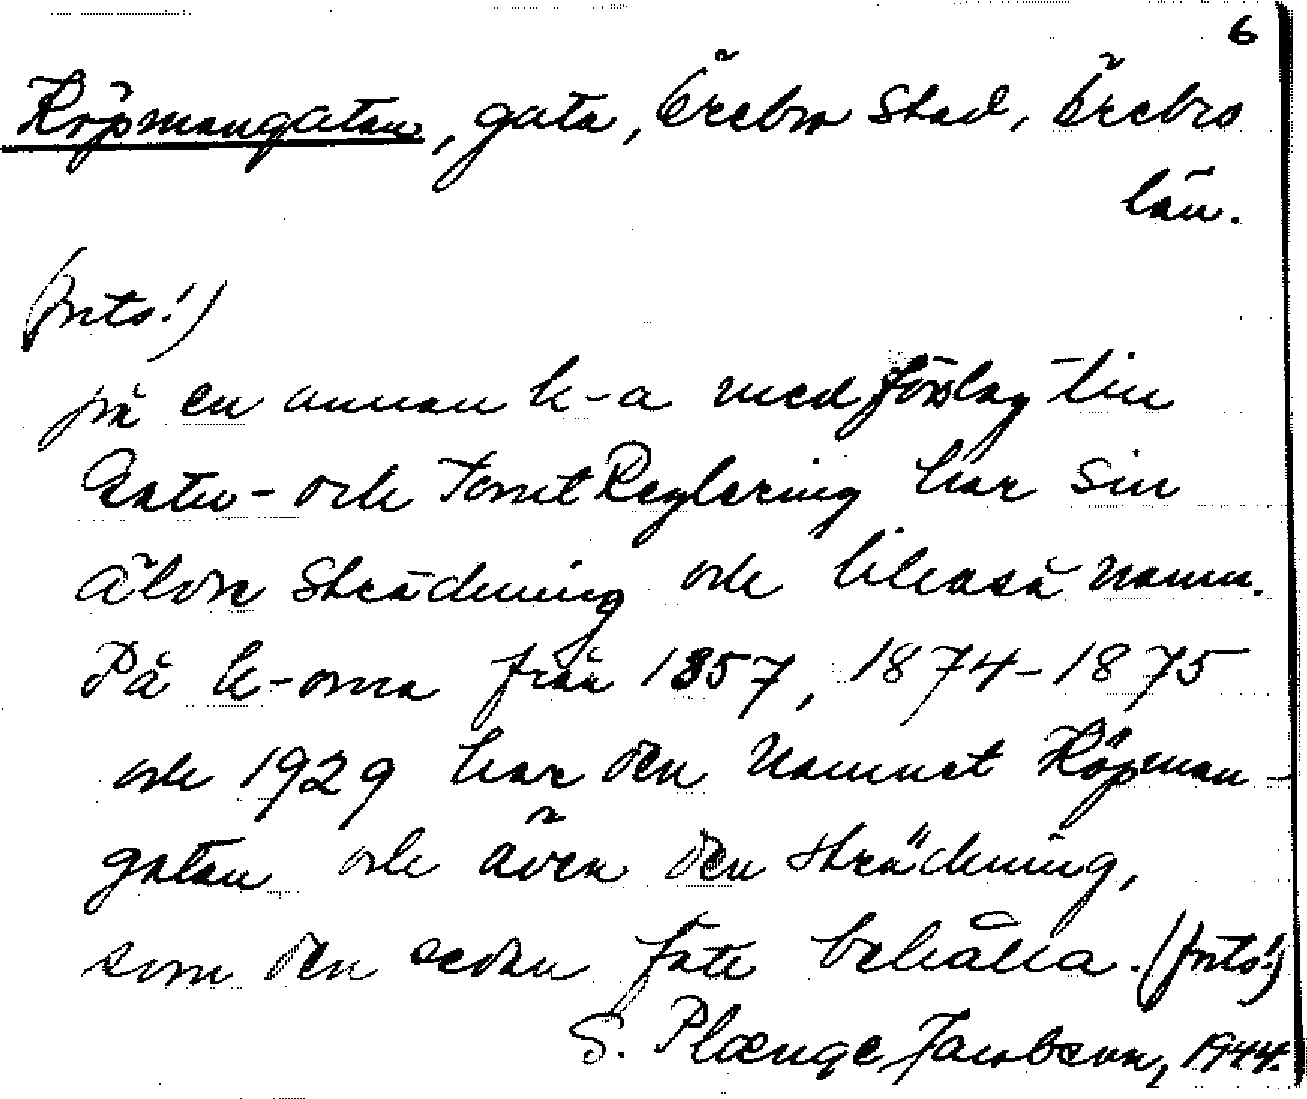 6
Köpmangatan, gata, Örebro stad, Örebro
län.
(forts!)
på en annan k-a med förslag till
Gatu- och Tomt Reglering har sin
äldre sträckning och likaså namn.
På k-orna från 1857, 1874-1875
och 1929 har den namnet Köpman-
gatan och även den sträckning,
som den sedan fått behålla. (forts!)
S. Plænge Jacobson, 1944.